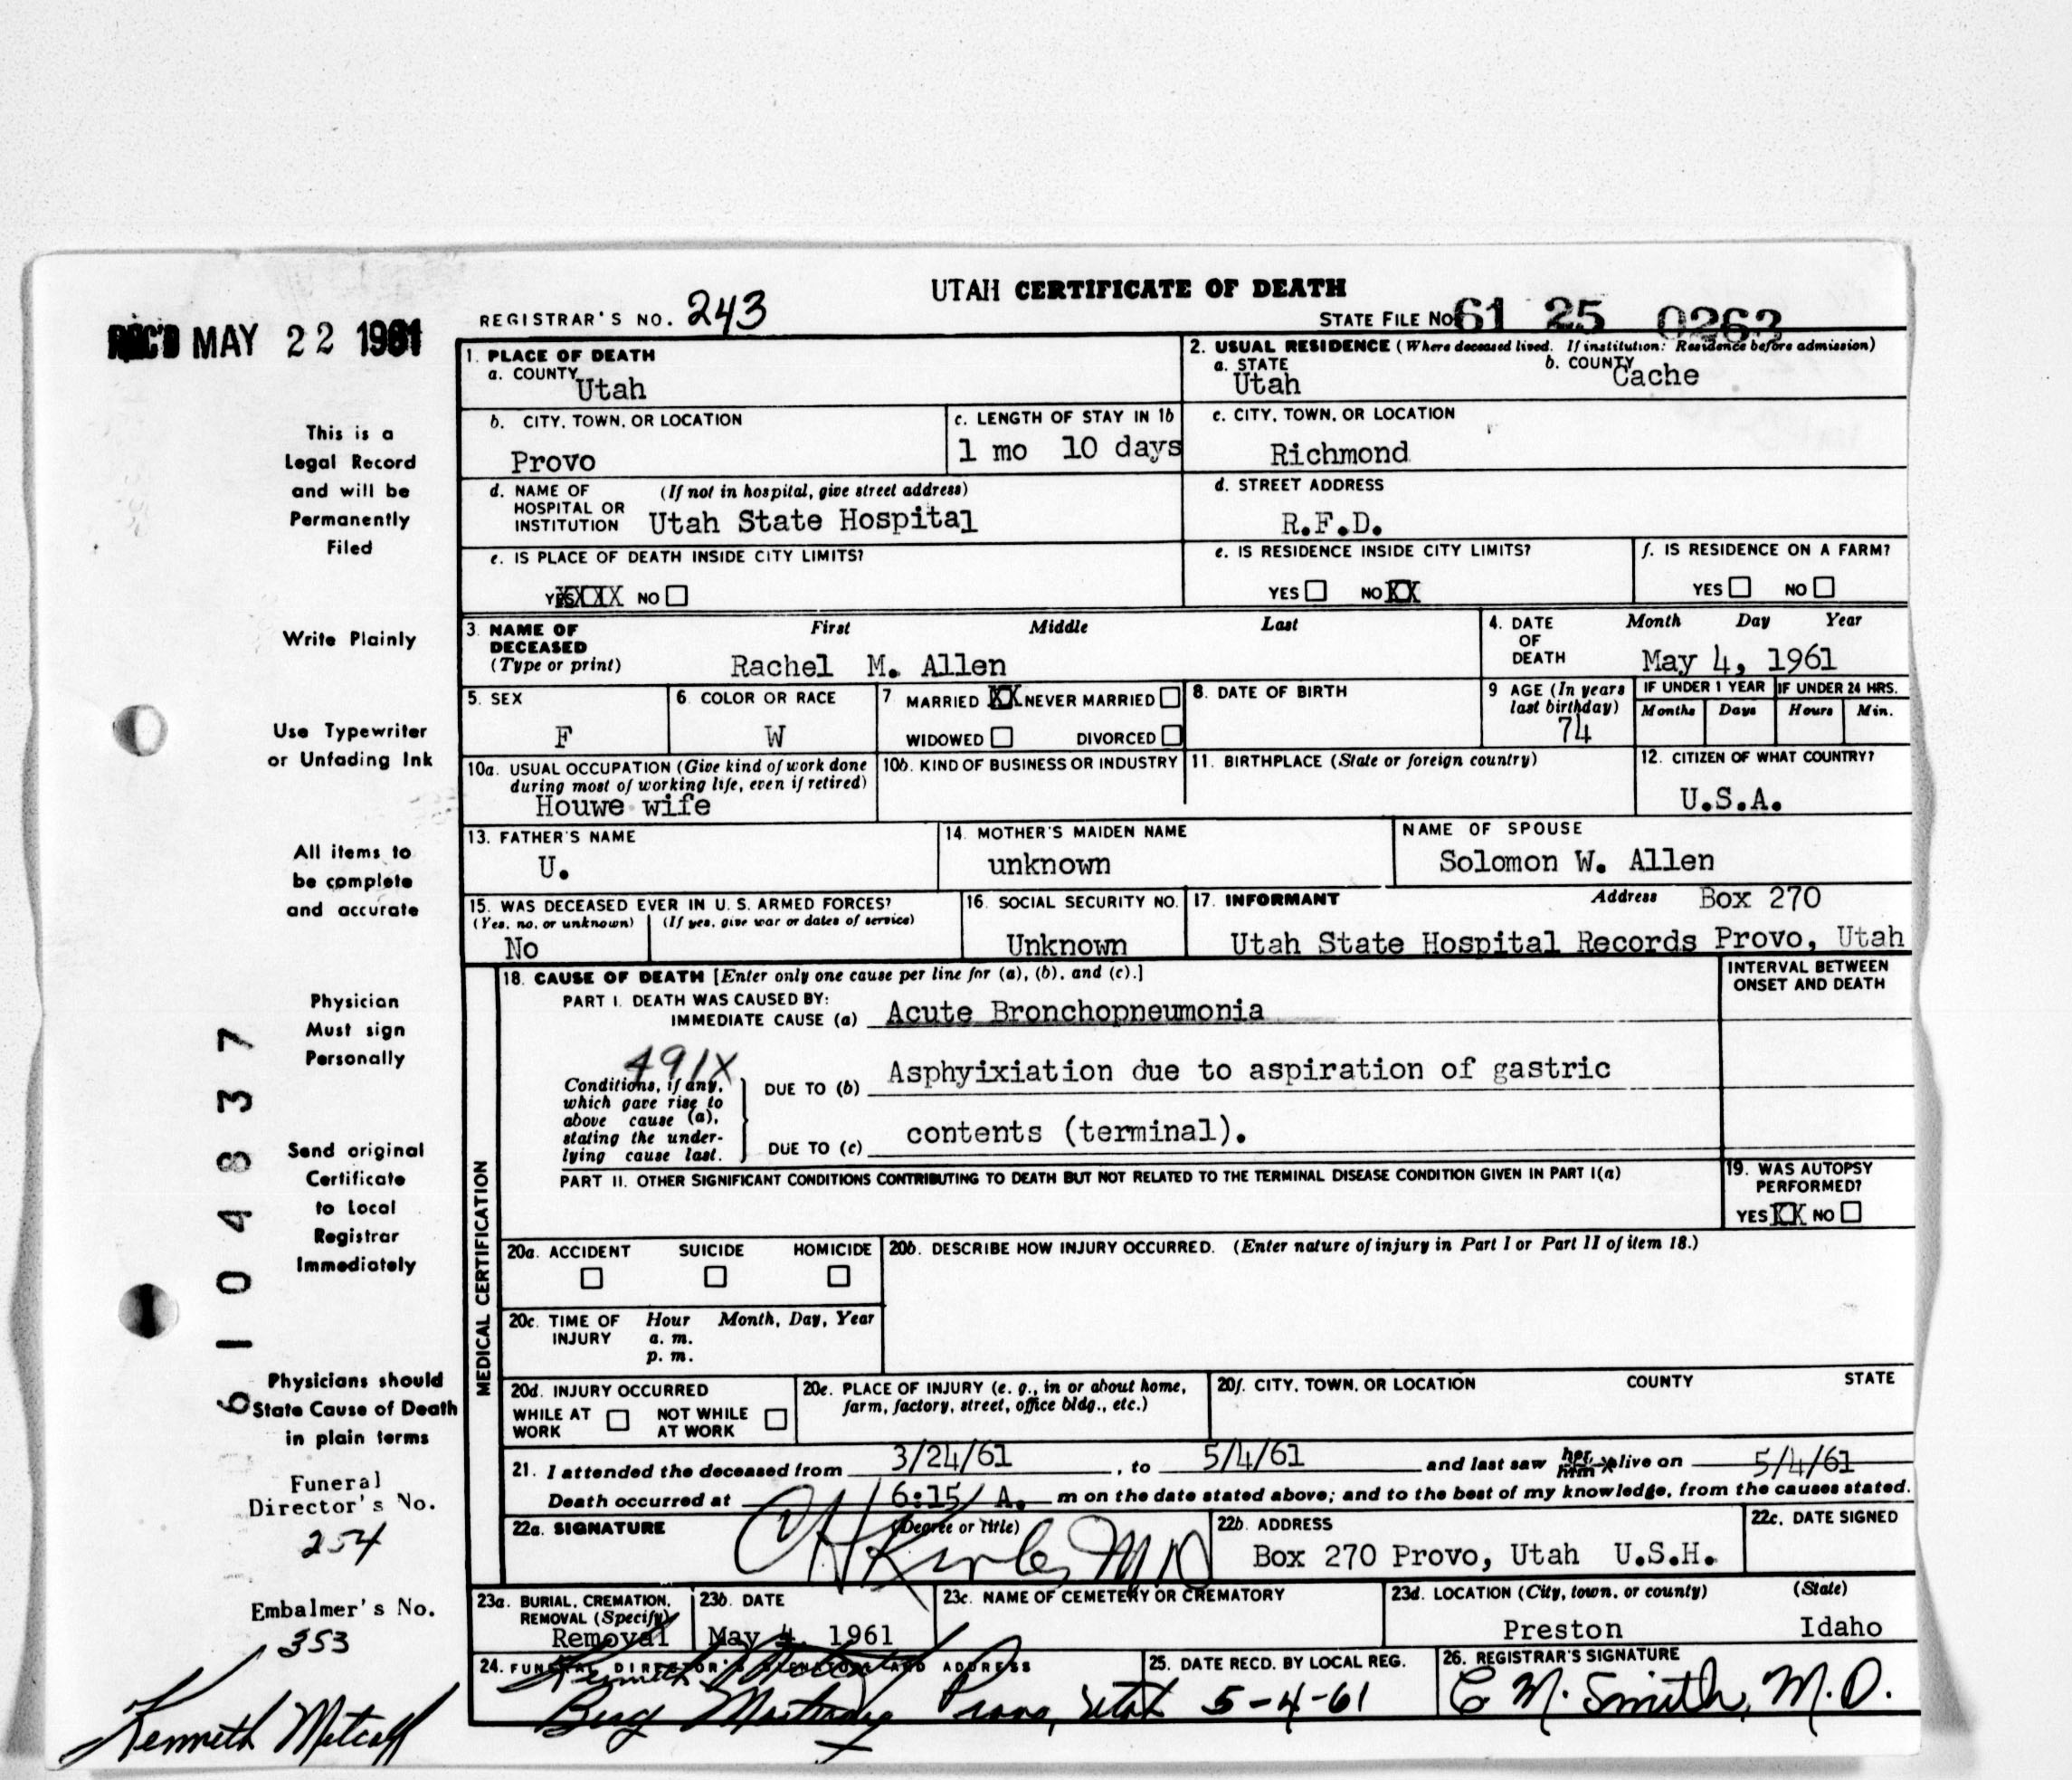 UTAH CERTIFICATE OF DEATH
REGISTRAR'S NO. 243
STATE FILE No 61 25 0262
REC'D MAY 22 1961
This is a
Legal Record
and will be
Permanently
Filed
Write Plainly
Use Typewriter
or Unfading Ink
All items to
be complete
and accurate
Physician
Must sign
Personally
Send original
Certificate
to Local
Registrar
Immediately
Physicians should
State Cause of Death
in plain terms
Funeral
Director's No.
254
Embalmer's No.
353
Kenneth Metcalf
6104837
1. PLACE OF DEATH
a. COUNTY
Utah
2. USUAL RESIDENCE (Where deceased lived. If institution: Residence before admission)
a. STATE b. COUNTY
Utah Cache
b. CITY, TOWN, OR LOCATION
Provo
c. LENGTH OF STAY IN 1b
1 mo 10 days
c. CITY, TOWN, OR LOCATION
Richmond
d. NAME OF (If not in hospital, give street address)
HOSPITAL OR
INSTITUTION Utah State Hospital
d. STREET ADDRESS
R.F.D.
e. IS PLACE OF DEATH INSIDE CITY LIMITS?
YES XXXX NO
e. IS RESIDENCE INSIDE CITY LIMITS?
YES NO XX
f. IS RESIDENCE ON A FARM?
YES NO
3. NAME OF First Middle Last
DECEASED
(Type or print) Rachel M. Allen
4. DATE Month Day Year
OF
DEATH May 4, 1961
5. SEX
F
6. COLOR OR RACE
W
7 MARRIED XX NEVER MARRIED
WIDOWED DIVORCED
8. DATE OF BIRTH
9 AGE (In years
last birthday)
74
IF UNDER 1 YEAR IF UNDER 24 HRS.
Months Days Hours Min.
10a. USUAL OCCUPATION (Give kind of work done
during most of working life, even if retired)
Houwe wife
10b. KIND OF BUSINESS OR INDUSTRY
11. BIRTHPLACE (State or foreign country)
12. CITIZEN OF WHAT COUNTRY?
U.S.A.
13. FATHER'S NAME
U.
14. MOTHER'S MAIDEN NAME
unknown
NAME OF SPOUSE
Solomon W. Allen
15. WAS DECEASED EVER IN U. S. ARMED FORCES?
(Yes, no, or unknown) (If yes, give war or dates of service)
No
16. SOCIAL SECURITY NO.
Unknown
17. INFORMANT Address Box 270
Utah State Hospital Records Provo, Utah
MEDICAL CERTIFICATION
18. CAUSE OF DEATH [Enter only one cause per line for (a), (b), and (c).]
INTERVAL BETWEEN
ONSET AND DEATH
PART I. DEATH WAS CAUSED BY:
IMMEDIATE CAUSE (a) Acute Bronchopneumonia
491X
Conditions, if any,
which gave rise to
above cause (a),
stating the under-
lying cause last.
DUE TO (b) Asphyixiation due to aspiration of gastric
DUE TO (c) contents (terminal).
PART II. OTHER SIGNIFICANT CONDITIONS CONTRIBUTING TO DEATH BUT NOT RELATED TO THE TERMINAL DISEASE CONDITION GIVEN IN PART I(a)
19. WAS AUTOPSY
PERFORMED?
YES XX NO
20a. ACCIDENT SUICIDE HOMICIDE
20b. DESCRIBE HOW INJURY OCCURRED. (Enter nature of injury in Part I or Part II of item 18.)
20c. TIME OF Hour Month, Day, Year
INJURY a. m.
p. m.
20d. INJURY OCCURRED
WHILE AT NOT WHILE
WORK AT WORK
20e. PLACE OF INJURY (e. g., in or about home,
farm, factory, street, office bldg., etc.)
20f. CITY, TOWN, OR LOCATION COUNTY STATE
21. I attended the deceased from 3/24/61, to 5/4/61 and last saw her him alive on 5/4/61
Death occurred at 6:15/ A. m on the date stated above; and to the best of my knowledge, from the causes stated.
22a. SIGNATURE (Degree or title)
MD
22b. ADDRESS
Box 270 Provo, Utah U.S.H.
22c. DATE SIGNED
23a. BURIAL, CREMATION,
REMOVAL (Specify)
Removal
23b. DATE
May 4, 1961
23c. NAME OF CEMETERY OR CREMATORY
23d. LOCATION (City, town, or county) (State)
Preston Idaho
24. FUNERAL DIRECTOR'S SIGNATURE AND ADDRESS
Kenneth Metcalf
Berg Mortuary Provo, Utah
25. DATE RECD. BY LOCAL REG.
5-4-61
26. REGISTRAR'S SIGNATURE
C M. Smith, M.D.